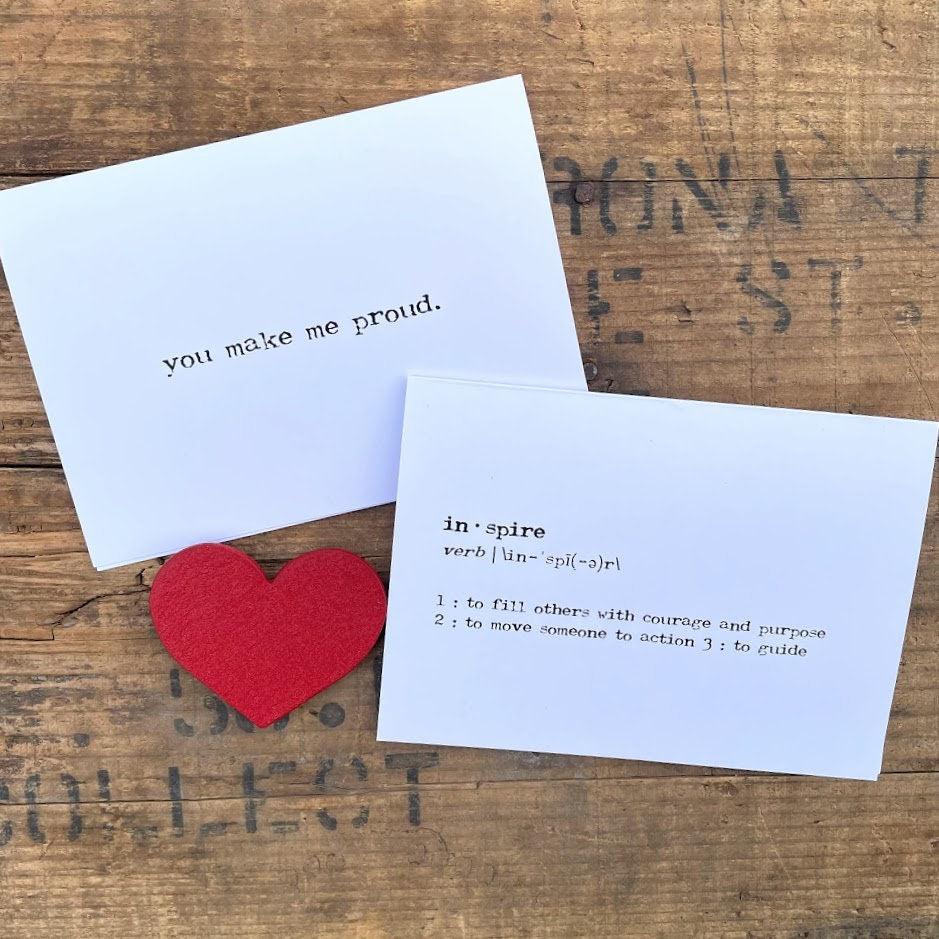 you make me proud.
in·spire
verb | \in-ˈspī(-ə)r\
1 : to fill others with courage and purpose
2 : to move someone to action 3 : to guide
ST.
COLLECT